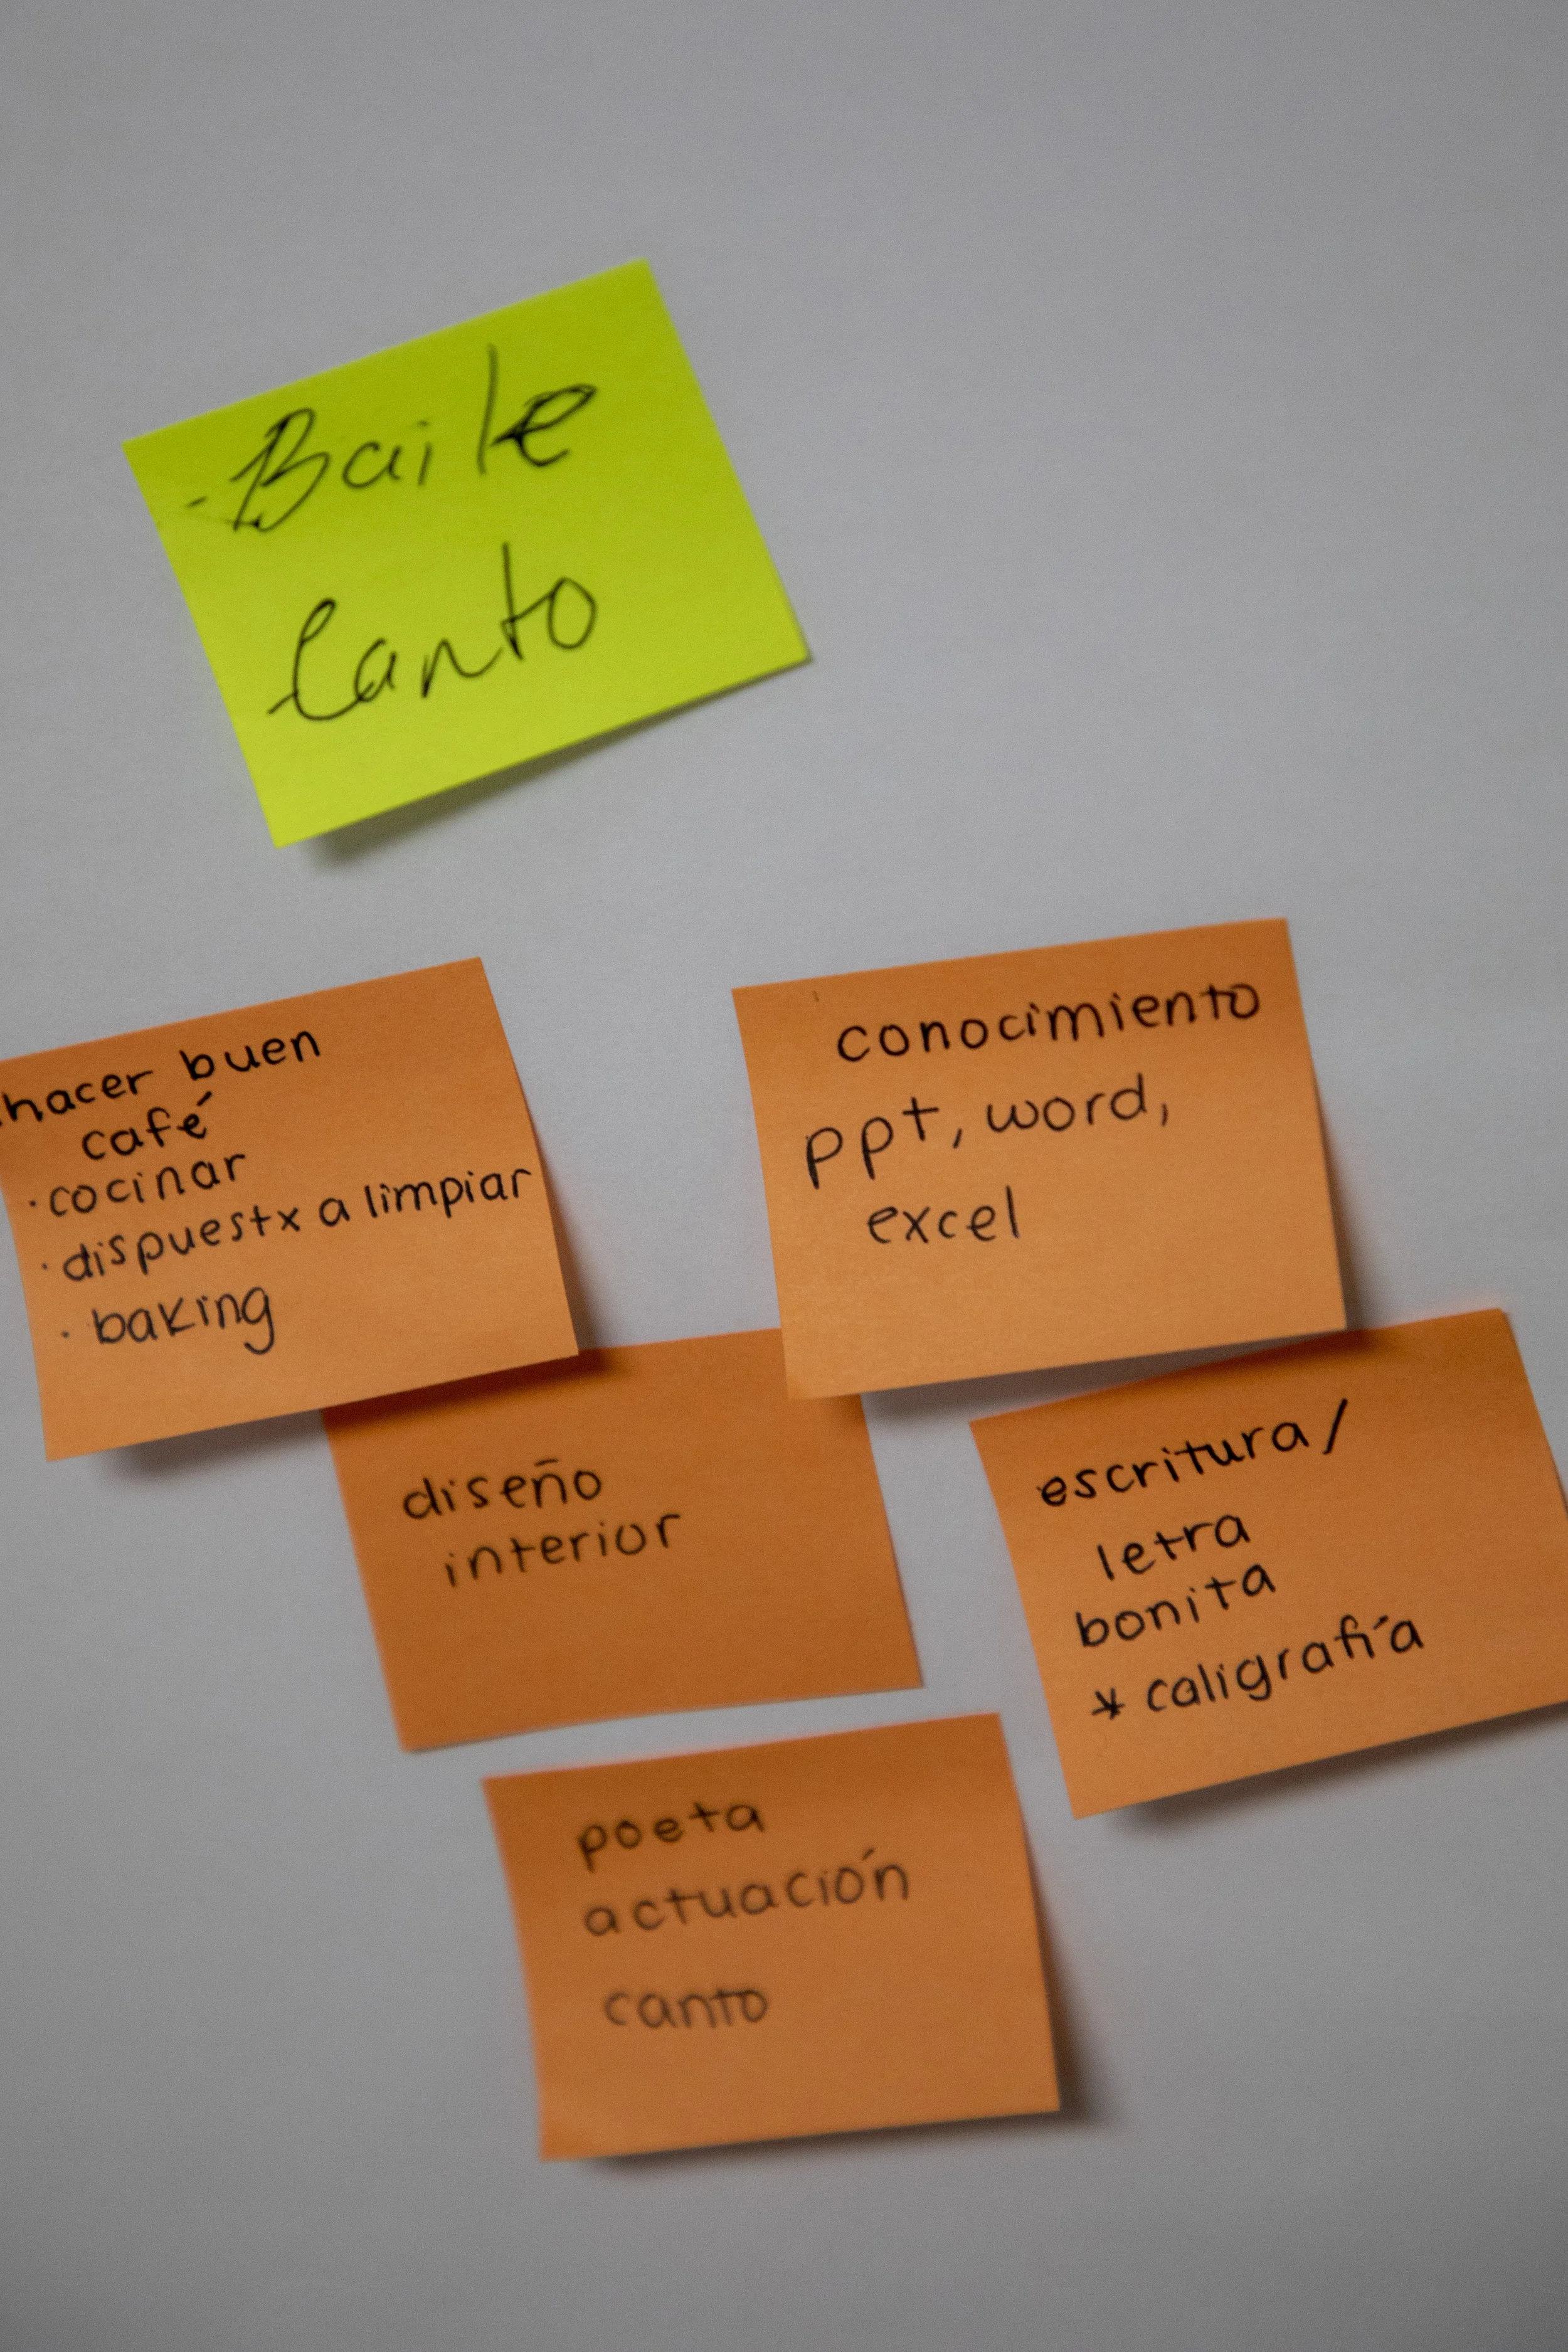 - Baile
Canto
· hacer buen
café
· cocinar
· dispuestx a limpiar
· baking
conocimiento
ppt, word,
excel
diseño
interior
escritura/
letra
bonita
* caligrafía
poeta
actuación
canto